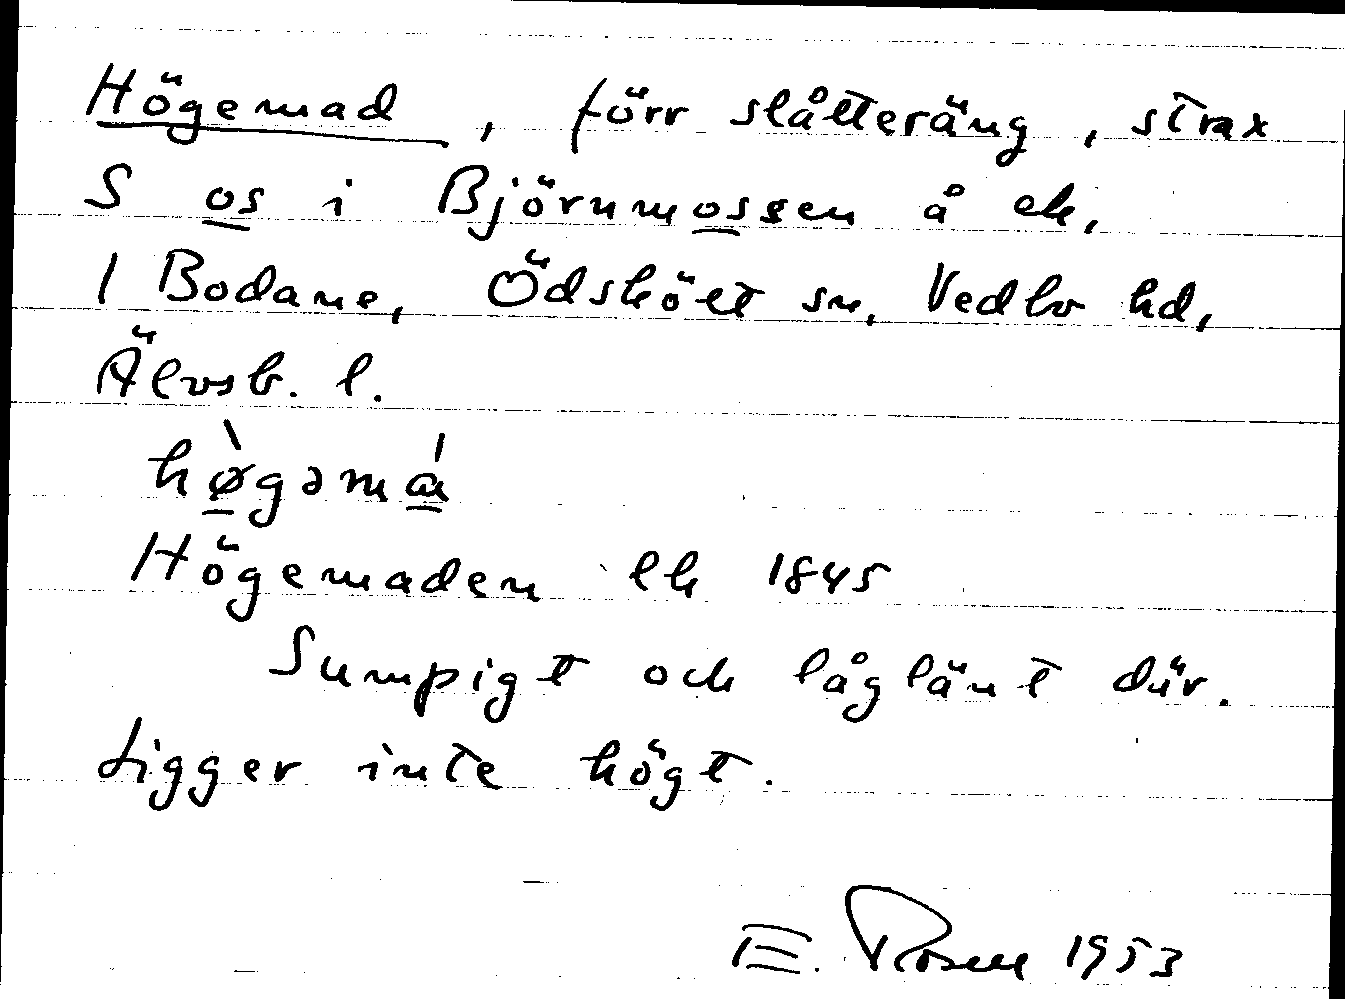 Högemad, förr slåtteräng, strax
S os i Björnmossen å ek,
1 Bodane, Ödsköлt sn, Vedbo hd,
Älvsb. l.
hø̀gəmá
Högemaden lk 1845
Sumpigt och låglänt där.
Ligger inte högt.
E. Rosell 1953